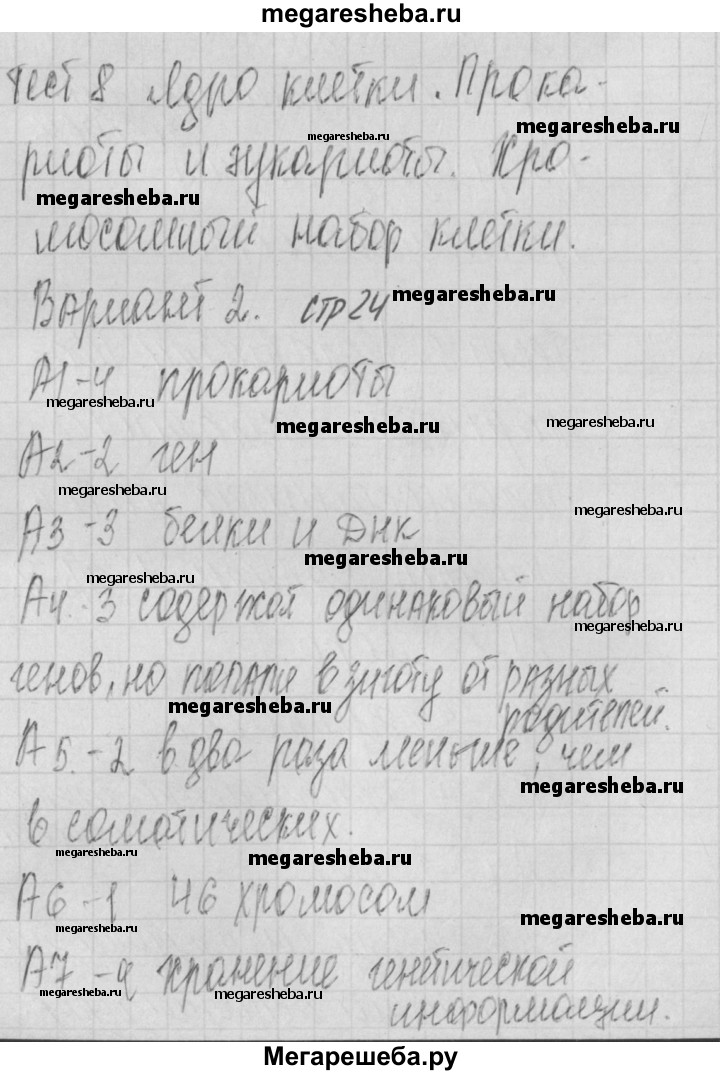 megaresheba.ru
Тест 8 Ядро клетки. Прока-
megaresheba.ru
megaresheba.ru
риоты и эукариоты. Хро-
megaresheba.ru
мосомный набор клетки.
Вариант 2. стр 24
megaresheba.ru
А1-4 прокариоты
megaresheba.ru
megaresheba.ru
megaresheba.ru
А2-2 ген
megaresheba.ru
megaresheba.ru
А3-3 белки и ДНК
megaresheba.ru
megaresheba.ru
А4.-3 содержат одинаковый набор
megaresheba.ru
генов, но попали в зиготу от разных
megaresheba.ru
родителей.
А5.-2 в два раза меньше, чем
megaresheba.ru
в соматических.
megaresheba.ru
megaresheba.ru
А6-1 46 хромосом
megaresheba.ru
megaresheba.ru
А7-4 хранение генетической
megaresheba.ru
megaresheba.ru
информации.
Мегарешеба.ру